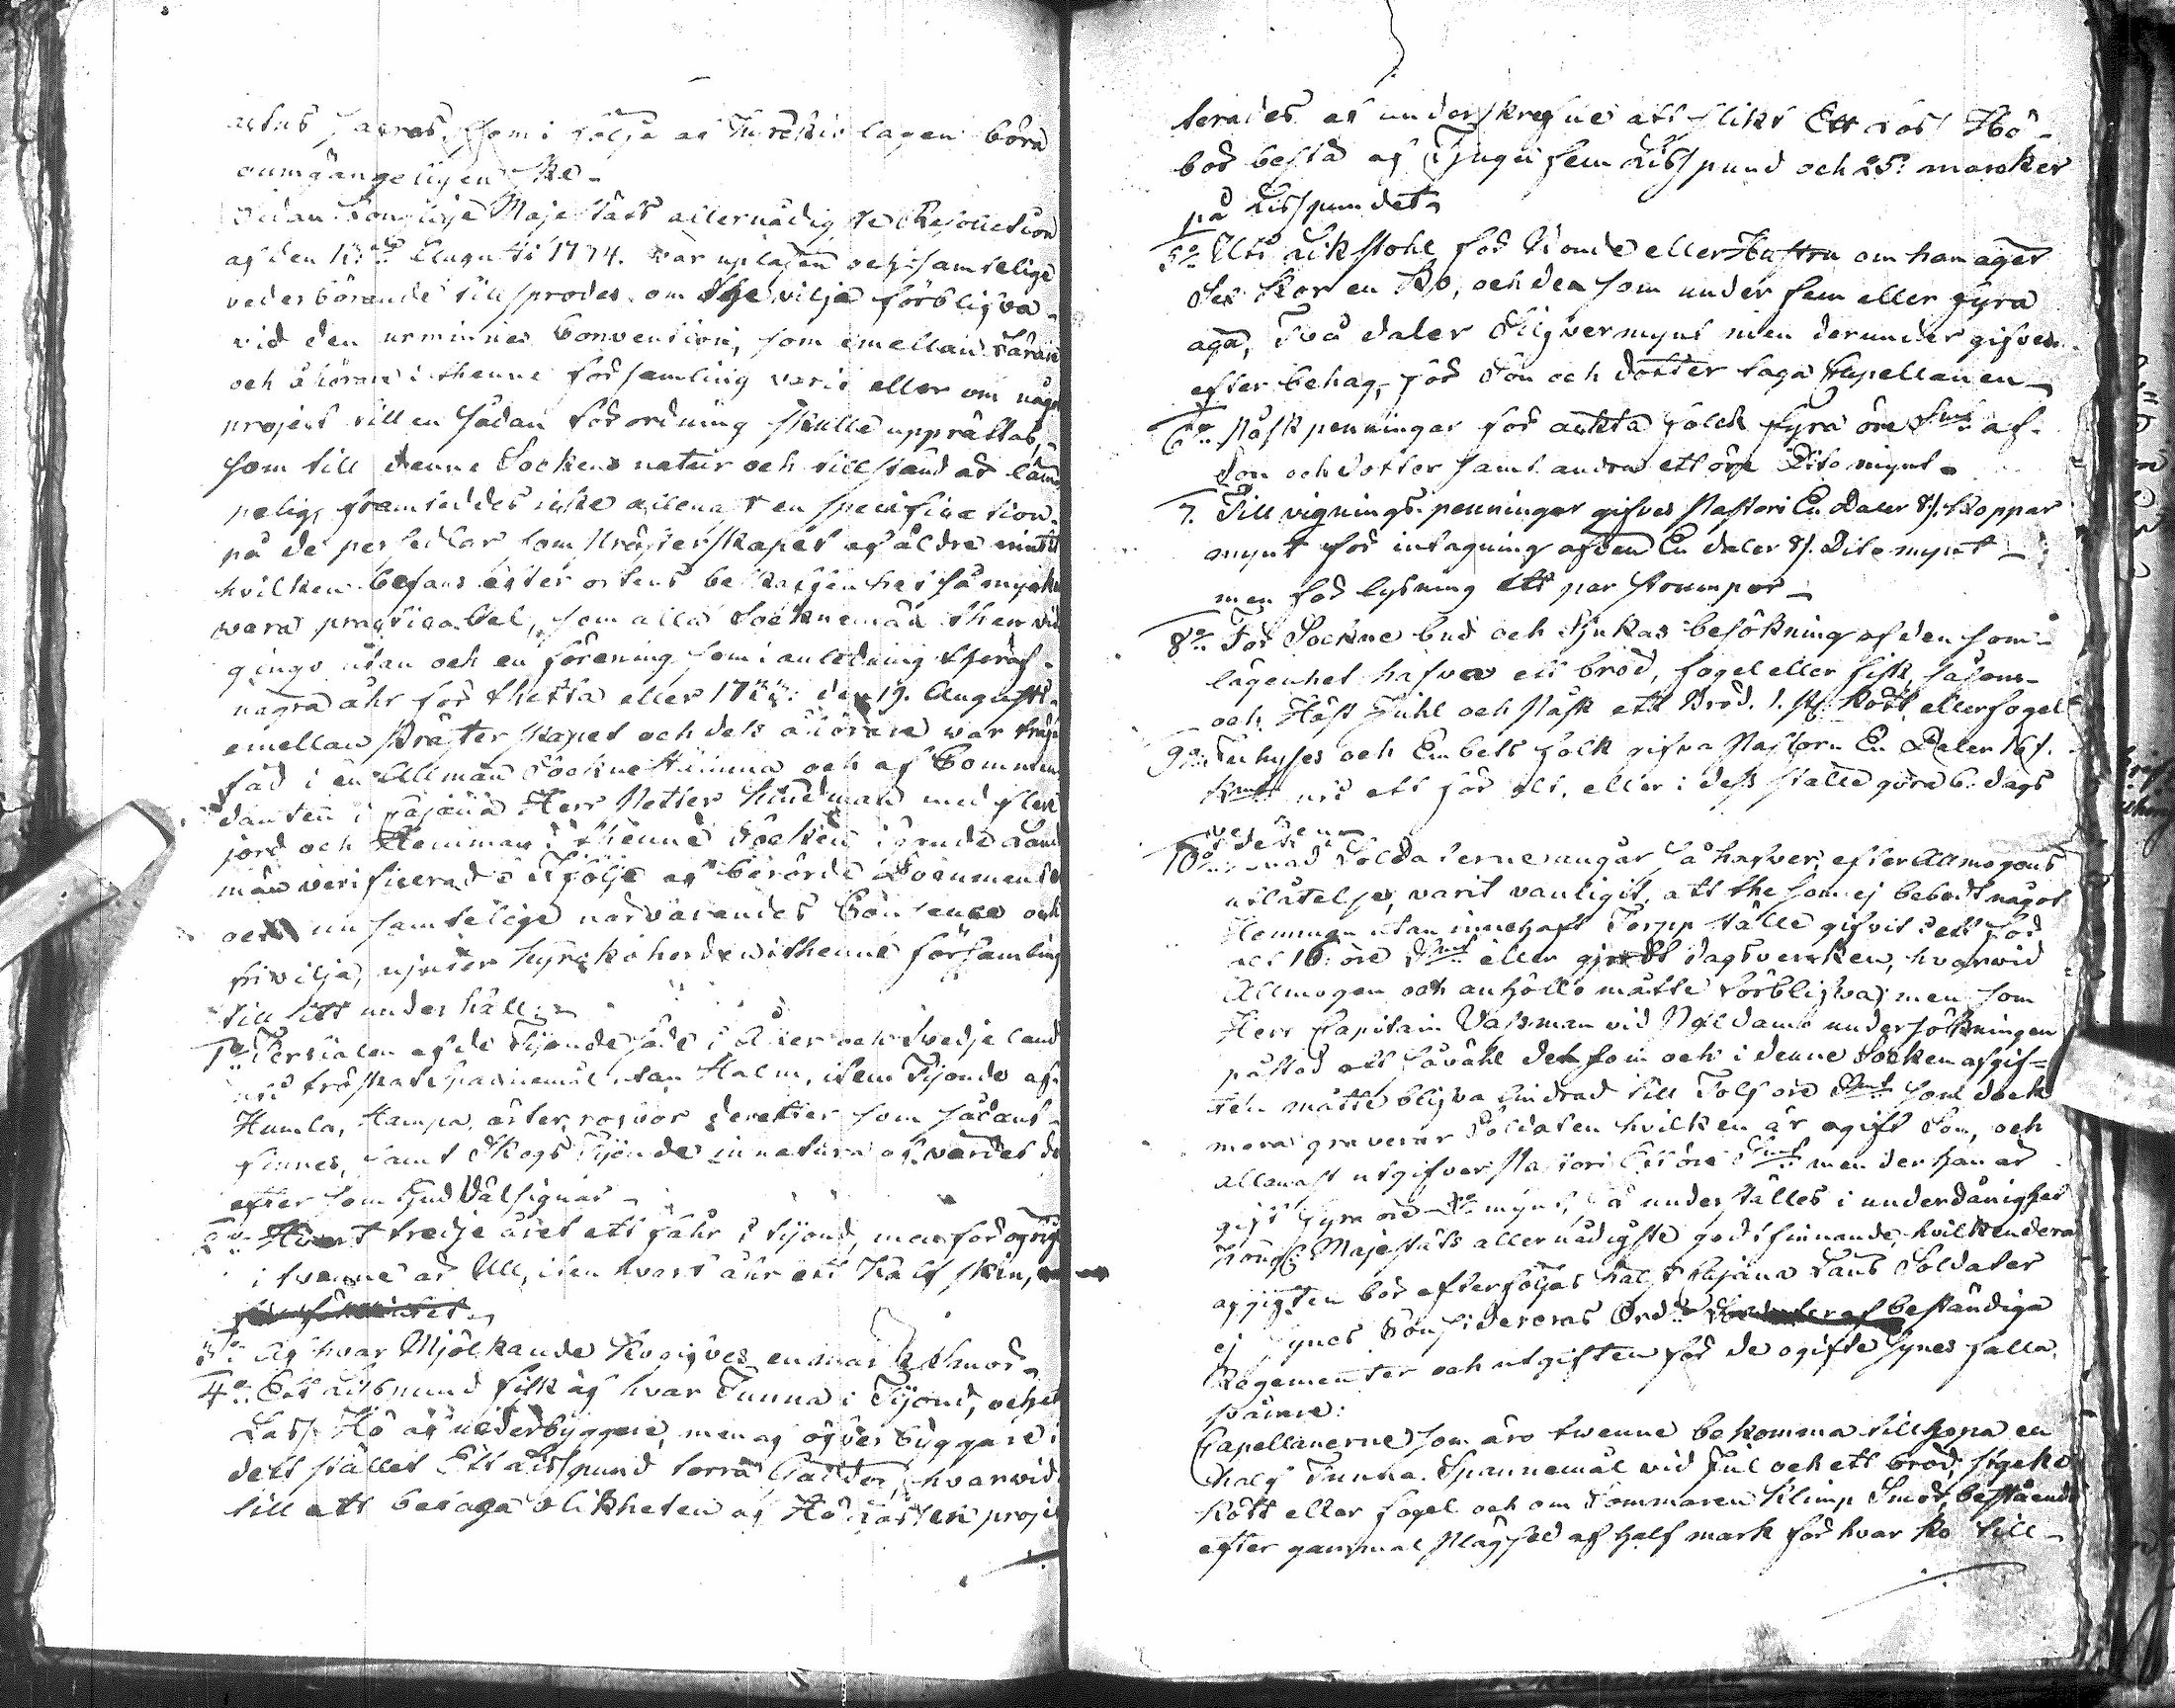 actus sacros, som i följe af Kyrckio lagen böra
oumgängeligen ske
Sedan Kongliga Majestäts allernådigste Resolution
af den Augusti 1774. var upläsen och samtelige
vederbörande tillsprodes om the vilja förblifva
vid den urminnes Convention, som emellan Lärare
och åhörare i thenne församling varit eller om någe
project till en sådan förordning skulle upprättas,
som till denne Sockens natur och tillstånd är lämp
pelig, framteddes icke allenast en specification
på de persedlar som Prästerskapet af äldre
hvilken befans efter ortens beskaffenhet så mycke
wara practicabel, som alla Socknemän ther
gingo utan och en förening som i anledning theraf
några åhr för thetta eller den 19. Augusti
emellan Prästerskapet och dess åhörare war
fad i en Allmän Sockne Stämma och af Commen
danten i Cajana Herr Petter med flere
jord och Hemman i thenne Socken Länd
män verificerad i följe af berörde Documente
och nu samtelige närvarandes Consence och
fri vilja, njuter Kyrckoherden i thenne församling
till sitt underhåll
1o Tertialen af de Tijonde säde i Åker och Svedje land
tröskat Spannemål utan Halm, item Tijonde af
Humla, Hampa, ärter, rofvor deretter som sådant
finnes, samt Skogs Tijonde in natura af värdet de
efter som Gud välsignar
2o Hvart tredje året ett fåhr i tijond, men för öfrigt
i tvenne år Ull, item hvart åhr ett Kalf skin,
3o Af hvar Mjölkande Ko gifves en mark Smör
4o Ett Lispund fisk af hvar Tunna i Tijond, och ett
Lass Hö af nederbyggare, men af öfver byggare i
dess stället Ett Lisspund torra Gäddor, hvarwid
till att betaga olikheten af Hö Lasten project
terades af underskrefne att slikt Ett Lass Hö
bör bestå af Tjugu fem Lisspund och 25. marcker
på Lisspundet
5o Uti Likstohl för Bonde eller Hustru om han äger
Sex Kor en Ko, och den som under fem eller fyra
äga, Två daler Silfvermynt men derunder gifves
efter behag, för Son och dotter taga Capellanen
6o Påsk penningar för äckta folck fyra öre Smt af
Son och dotter samt andra ett öre Dito mynt
7. Till vignings penningar gifves Pastori En Daler Koppar
mynt för intagning afven En daler Dito mynt
men för lysning ett par Strumpor
8o För Sockne bud och Sjukas besökning af den som
lägenhet hafver ett bröd, fogel eller fisk, såsom
och Höst Juhl och Påsk ett Bröd. 1. Kött eller fogel
9o Inhyses och Enbets folk gifva Pastorn En Daler 16 f.
Kmt ett för alt, eller i dess ställe göra 6. dags
10o Soldaterne angår så hafver, efter Allmogens
utlåtelse, varit vanligit, att the som ej bebodt något
Hemman utan innehaft Torpp ställe gifvit ett för
alt 16: öre Smt eller gjordt dagsvercken, hvarwid
Allmogen och anhölle måtte förblifva; men som
Herr Capitain Vassman vid undersökningen
påstod att såväl det som och i denne Socken afgif-
ten måtte blifva lindrad till Tolf öre Smt som dock
mera graverar Soldaten hvilken är ogift Son, och
allenast utgifver Pastori Ett öre Smt men der han är
gift fyra öre Do mynt, så underställes i underdånighet
Kongl: Majestäts allernådigste godtfinnande, hvilkendera
afgiften bör efterföljas Cajana Läns Soldater
ej synes Considereras Ord: beständiga
Regementer och utgiften för de ogifte synes falla
svårare:
Capellanerne som äro twenne bekomma tillhopa en
half Tunna Spannemål vid Jul och ett bröd, stycke
Kött eller fogel och om Sommaren Klimp Smör, bestående
efter gammal Plägsed af half mark för hvar Ko till